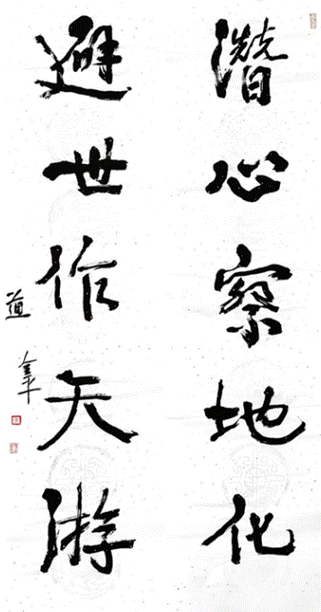 潛心察地化
避世作天游
道